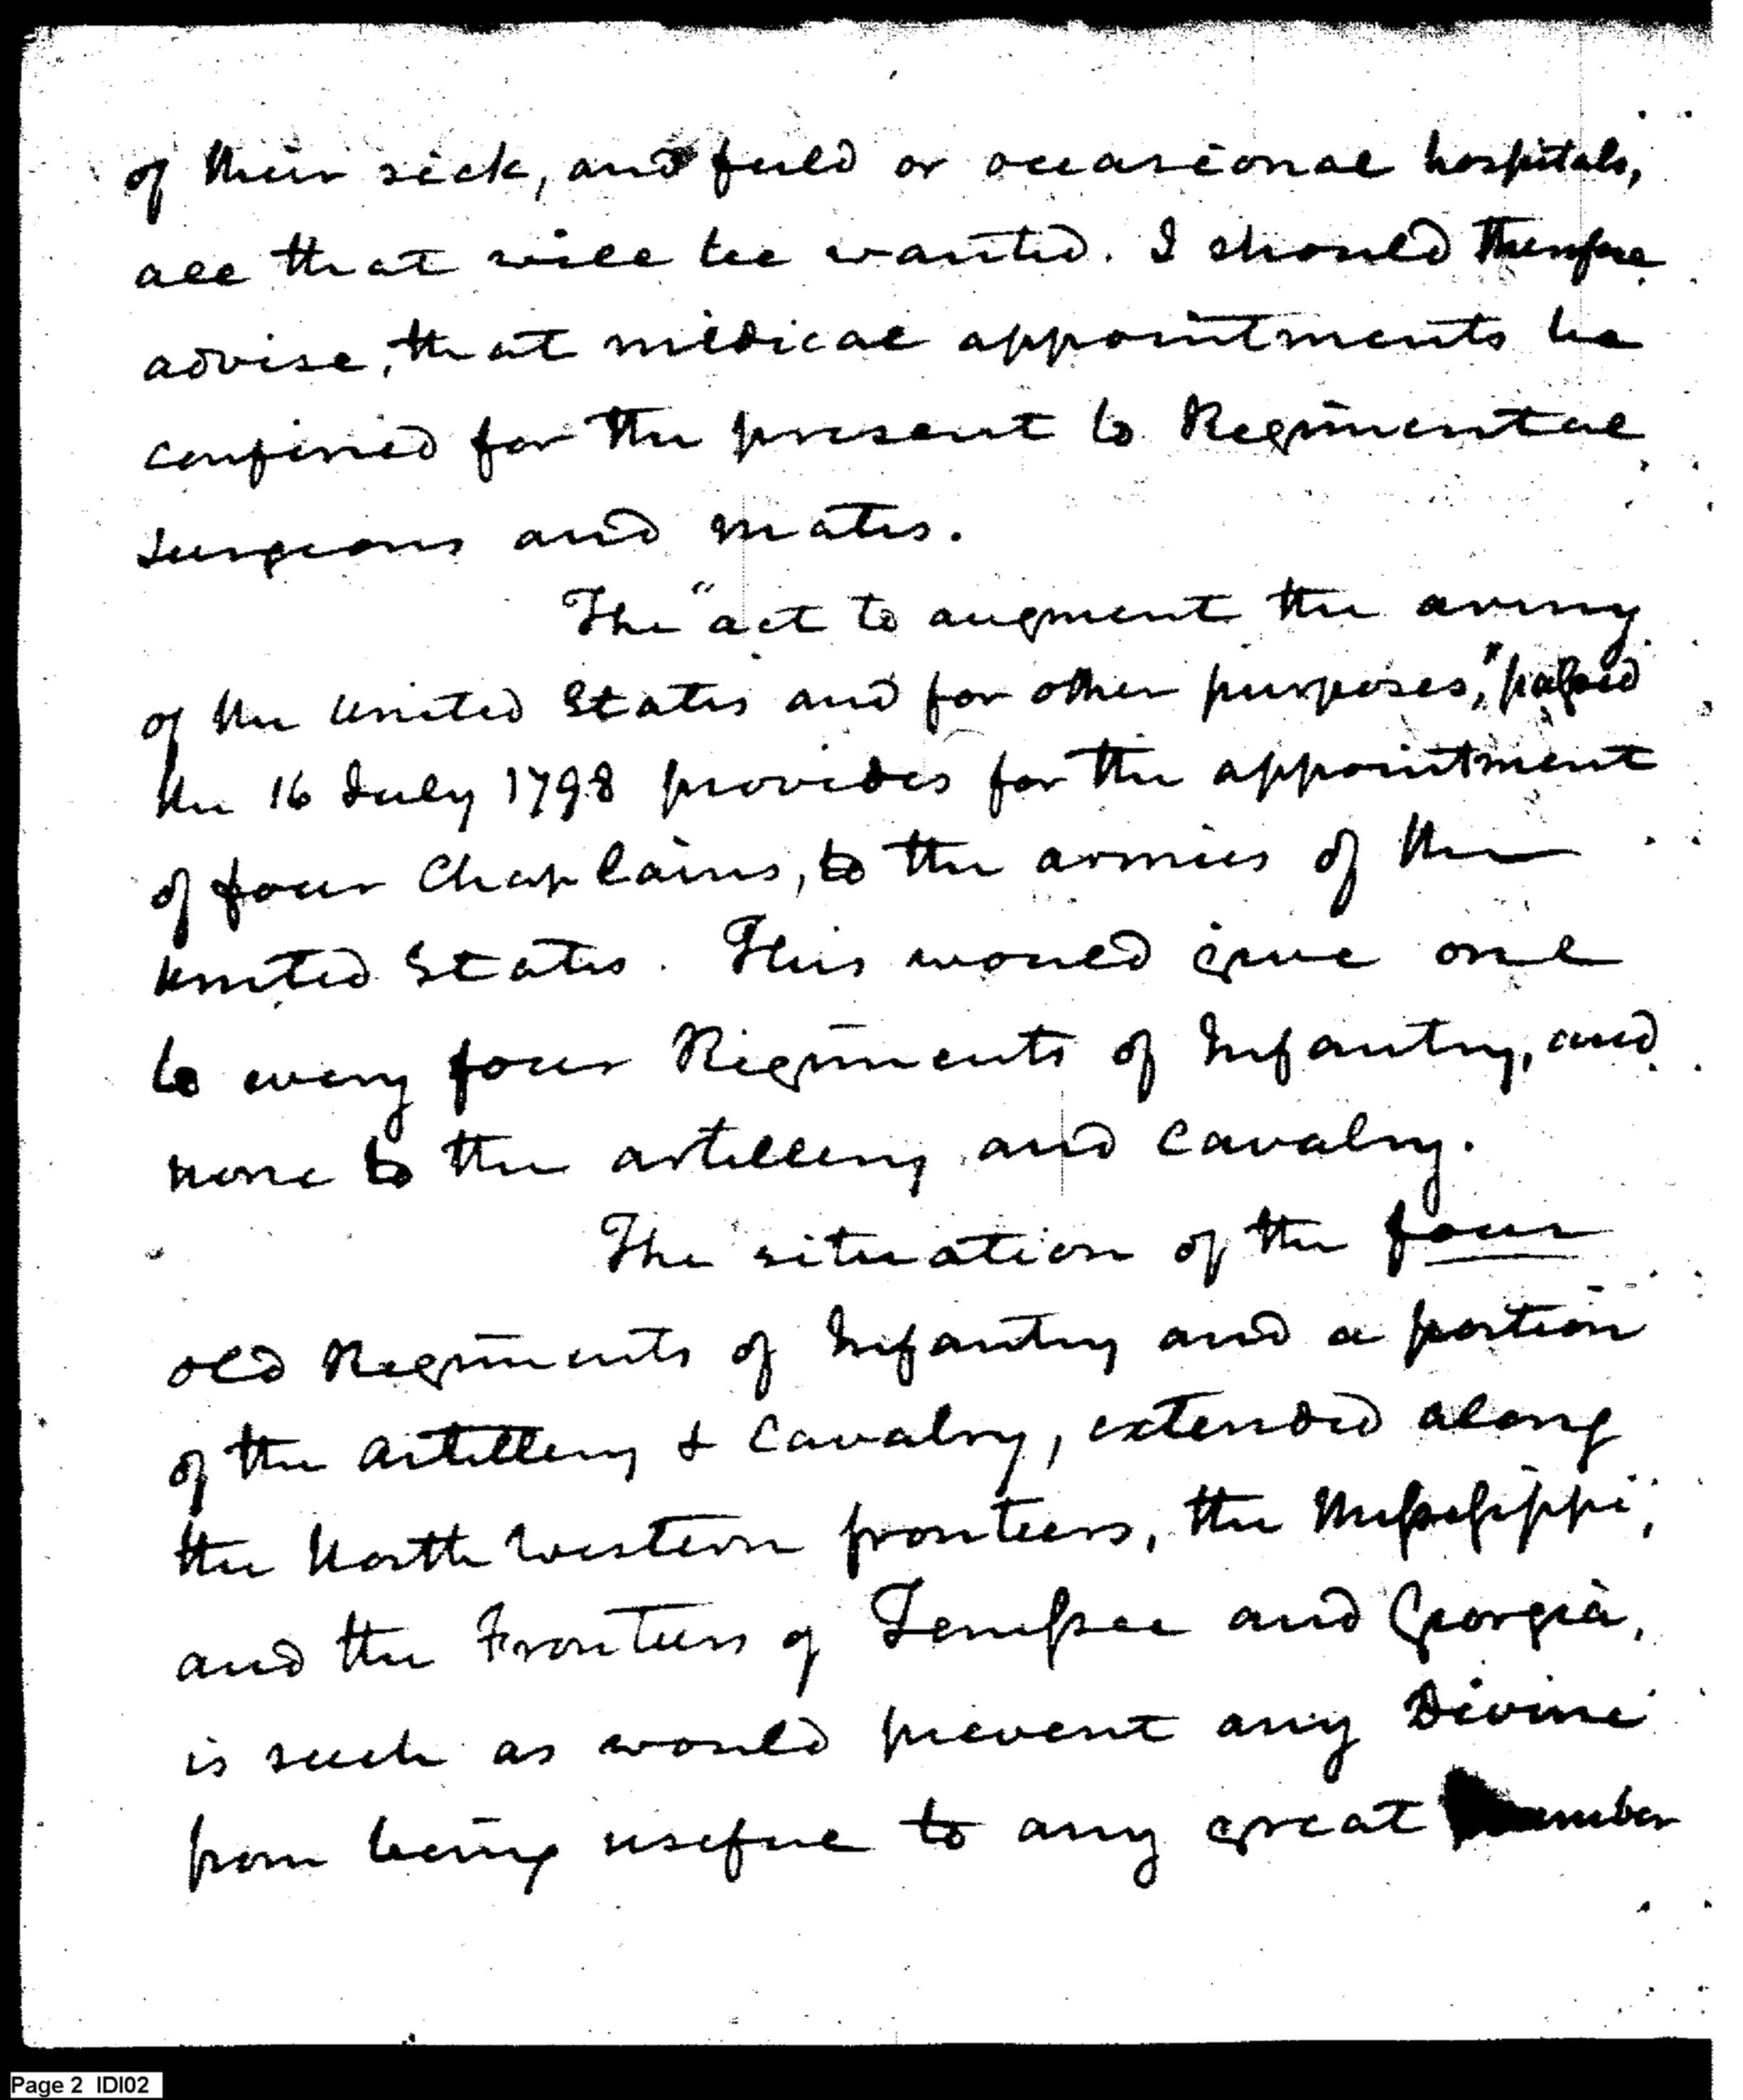 of their sick, and field or occasional hospitals,
all that will be wanted. I should therefore
advise, that medical appointments be
confined for the present to Regimental
surgeons and mates.
The "act to augment the army
of the United States and for other purposes," passed
the 16 July 1798 provides for the appointment
of four Chaplains, to the armies of the
United States. This would give one
to every four Regiments of Infantry, and
none to the artillery and cavalry.
The situation of the four
old Regiments of Infantry and a portion
of the Artillery & Cavalry, extended along
the North Western frontiers, the Mississippi,
and the Frontiers of Tenessee and Georgia,
is such as would prevent any Divine
from being useful to any great number
Page 2 IDI02